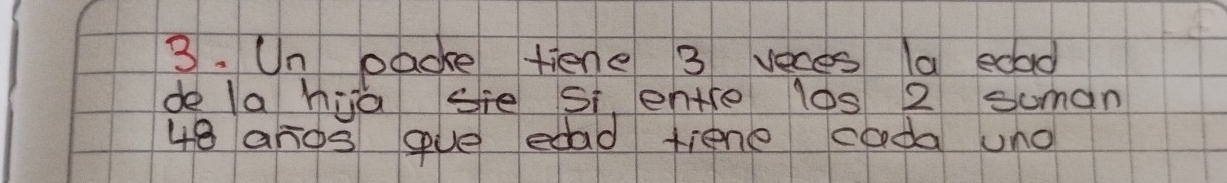 3. Un padre tiene 3 veces la edad
de la hija sie si entre los 2 suman
48 años que edad tiene cada uno